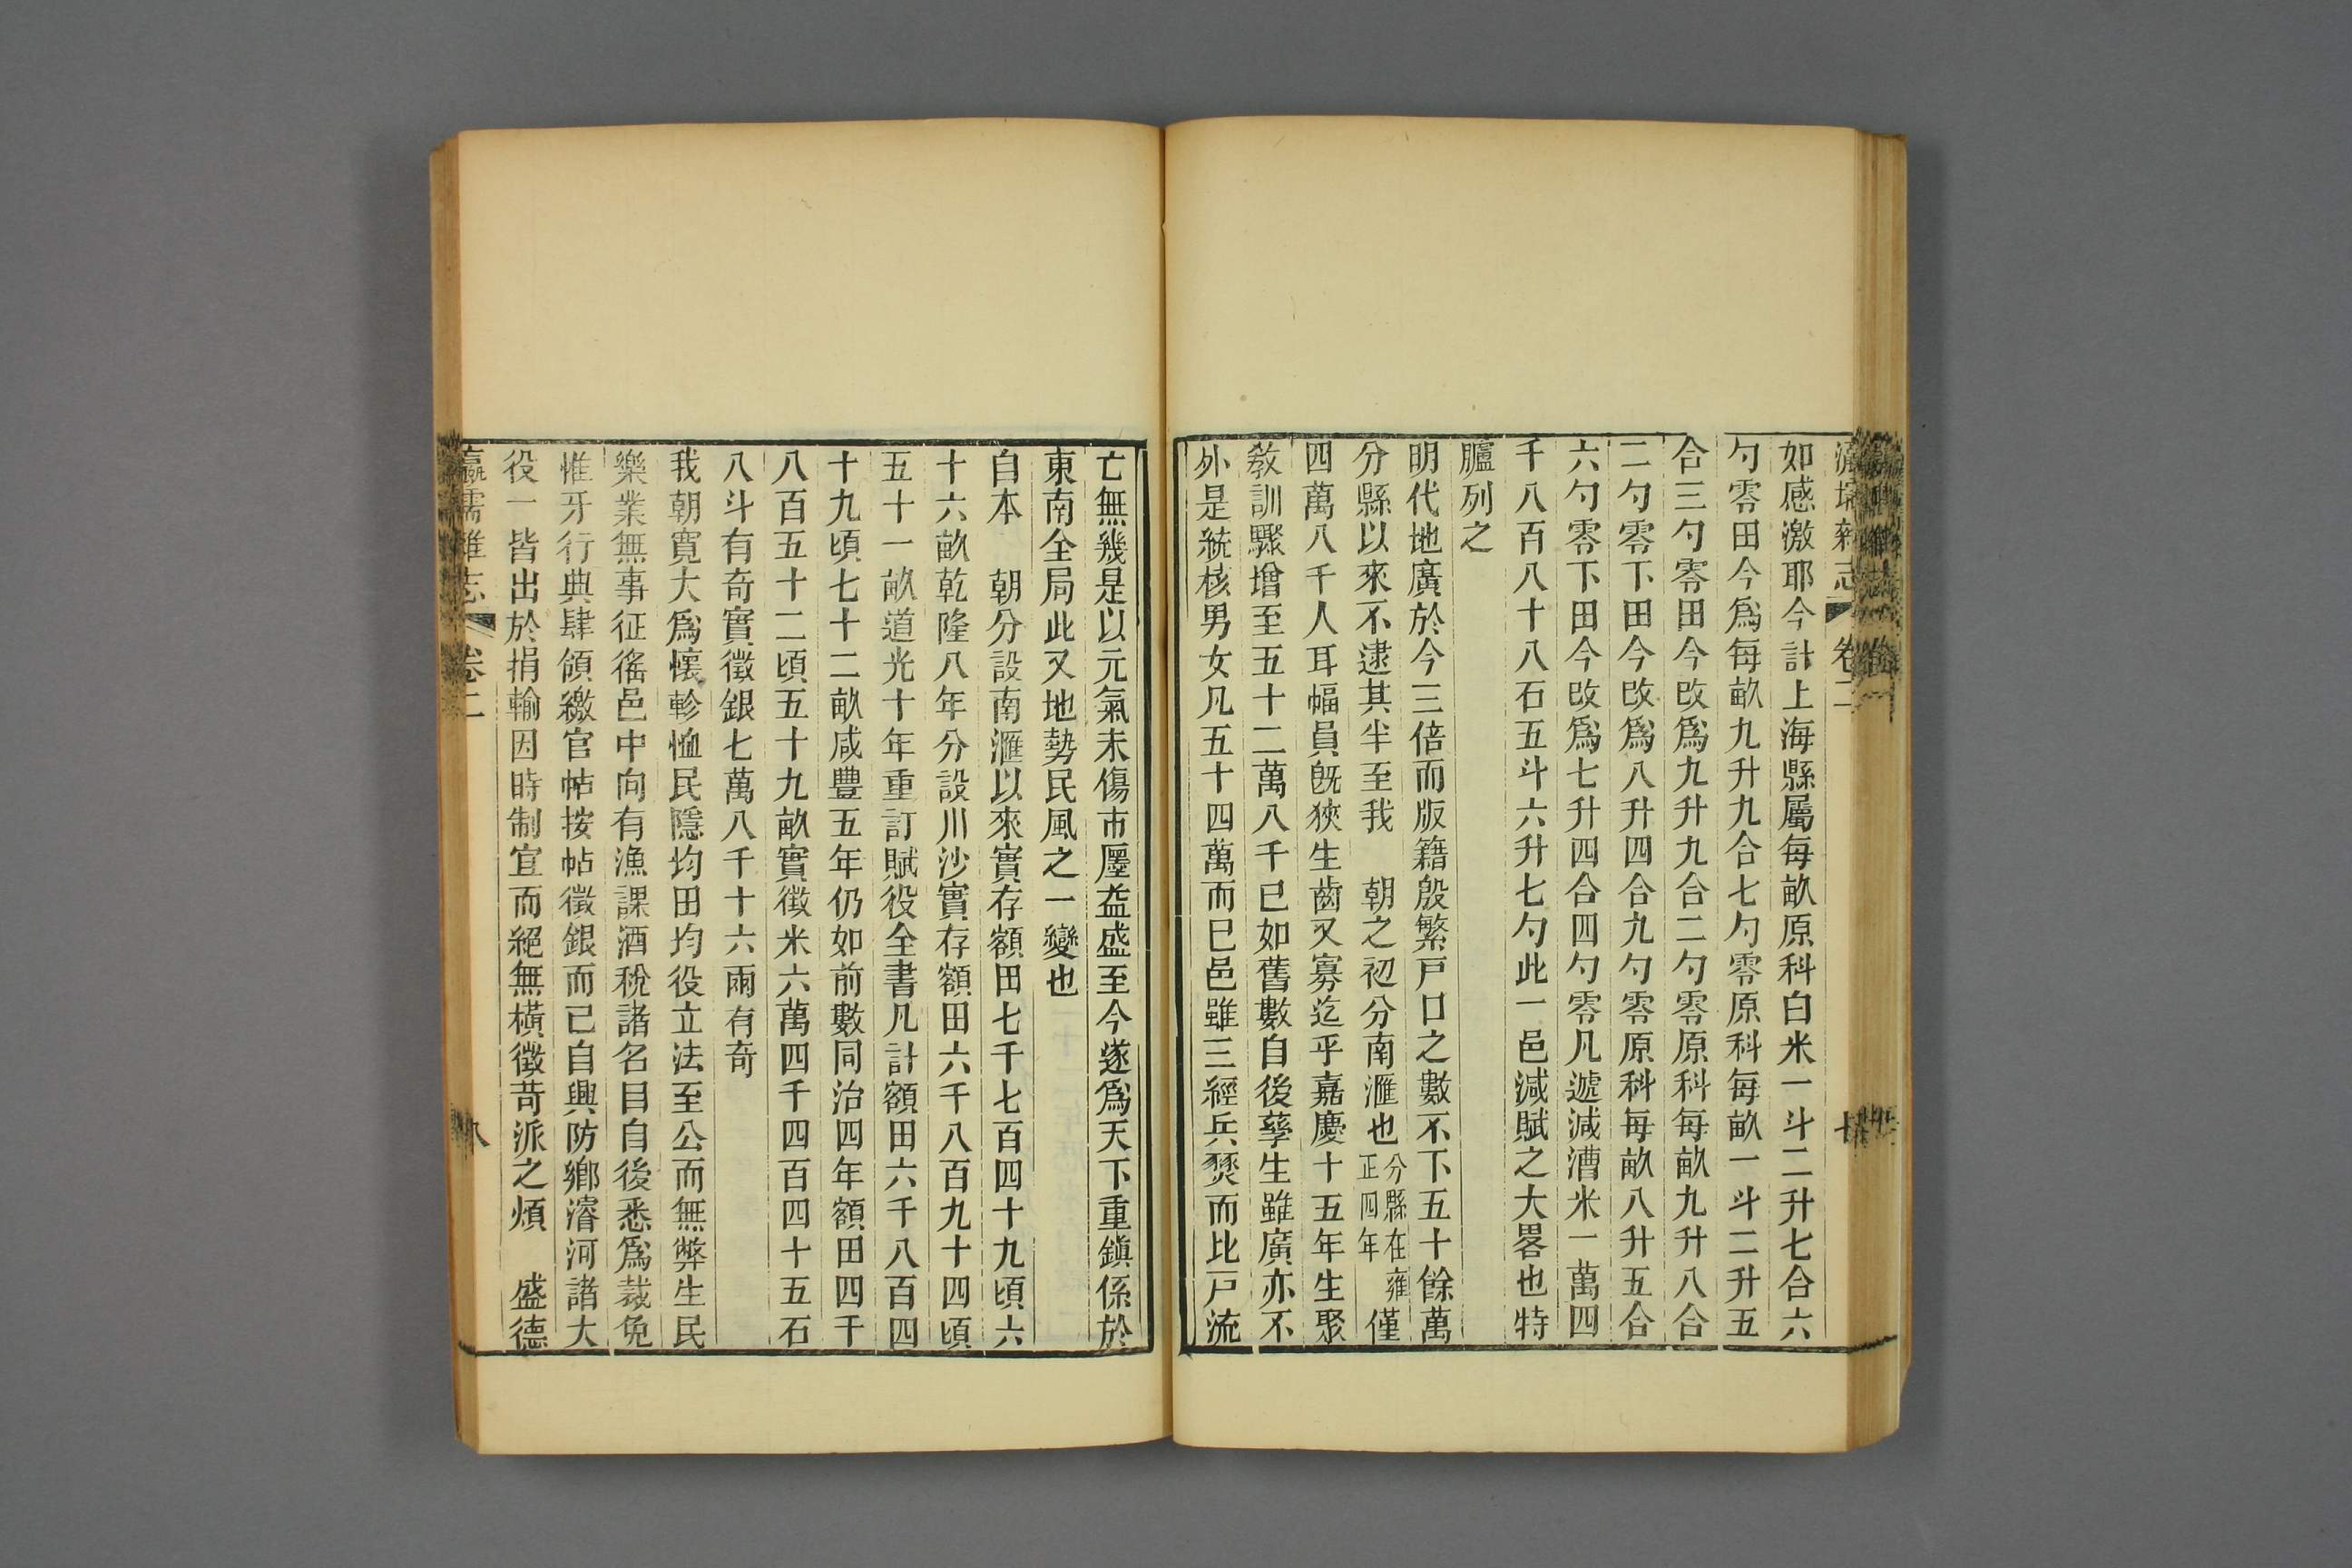 如感激耶今計上海縣屬每畝原科白米一斗二升七合六
勺零田今爲每畝九升九合七勺零原科每畝一斗二升五
合三勺零田今改爲九升九合二勺零原科每畝九升八合
二勺零下田今改爲八升四合九勺零原科每畝八升五合
六勺零下田今改爲七升四合四勺零凡遞減漕米一萬四
千八百八十八石五斗六升七勺此一邑減賦之大畧也特
臚列之
明代地廣於今三倍而版籍殷繁戸口之數不下五十餘萬
分縣以來不逮其半至我 朝之初分南滙也分縣在雍正四年僅
四萬八千人耳幅員旣狹生齒又寡迄乎嘉慶十五年生聚
敎訓驟增至五十二萬八千已如舊數自後孳生雖廣亦不
外是統核男女凡五十四萬而已邑雖三經兵燹而比戸流
亡無幾是以元氣未傷市廛益盛至今遂爲天下重鎭係於
東南全局此又地勢民風之一變也
自本 朝分設南滙以來實存額田七千七百四十九頃六
十六畝乾隆八年分設川沙實存額田六千八百九十四頃
五十一畝道光十年重訂賦役全書凡計額田六千八百四
十九頃七十二畝咸豐五年仍如前數同治四年額田四千
八百五十二頃五十九畝實徵米六萬四千四百四十五石
八斗有奇實徵銀七萬八千十六兩有奇
我朝寬大爲懷軫恤民隱均田均役立法至公而無弊生民
樂業無事征徭邑中向有漁課酒稅諸名目自後悉爲裁免
惟牙行典肆領繳官帖按帖徵銀而已自興防鄉濬河諸大
役一皆出於捐輸因時制宜而絕無橫徵苛派之煩 盛德
瀛壖雜志 卷二
八